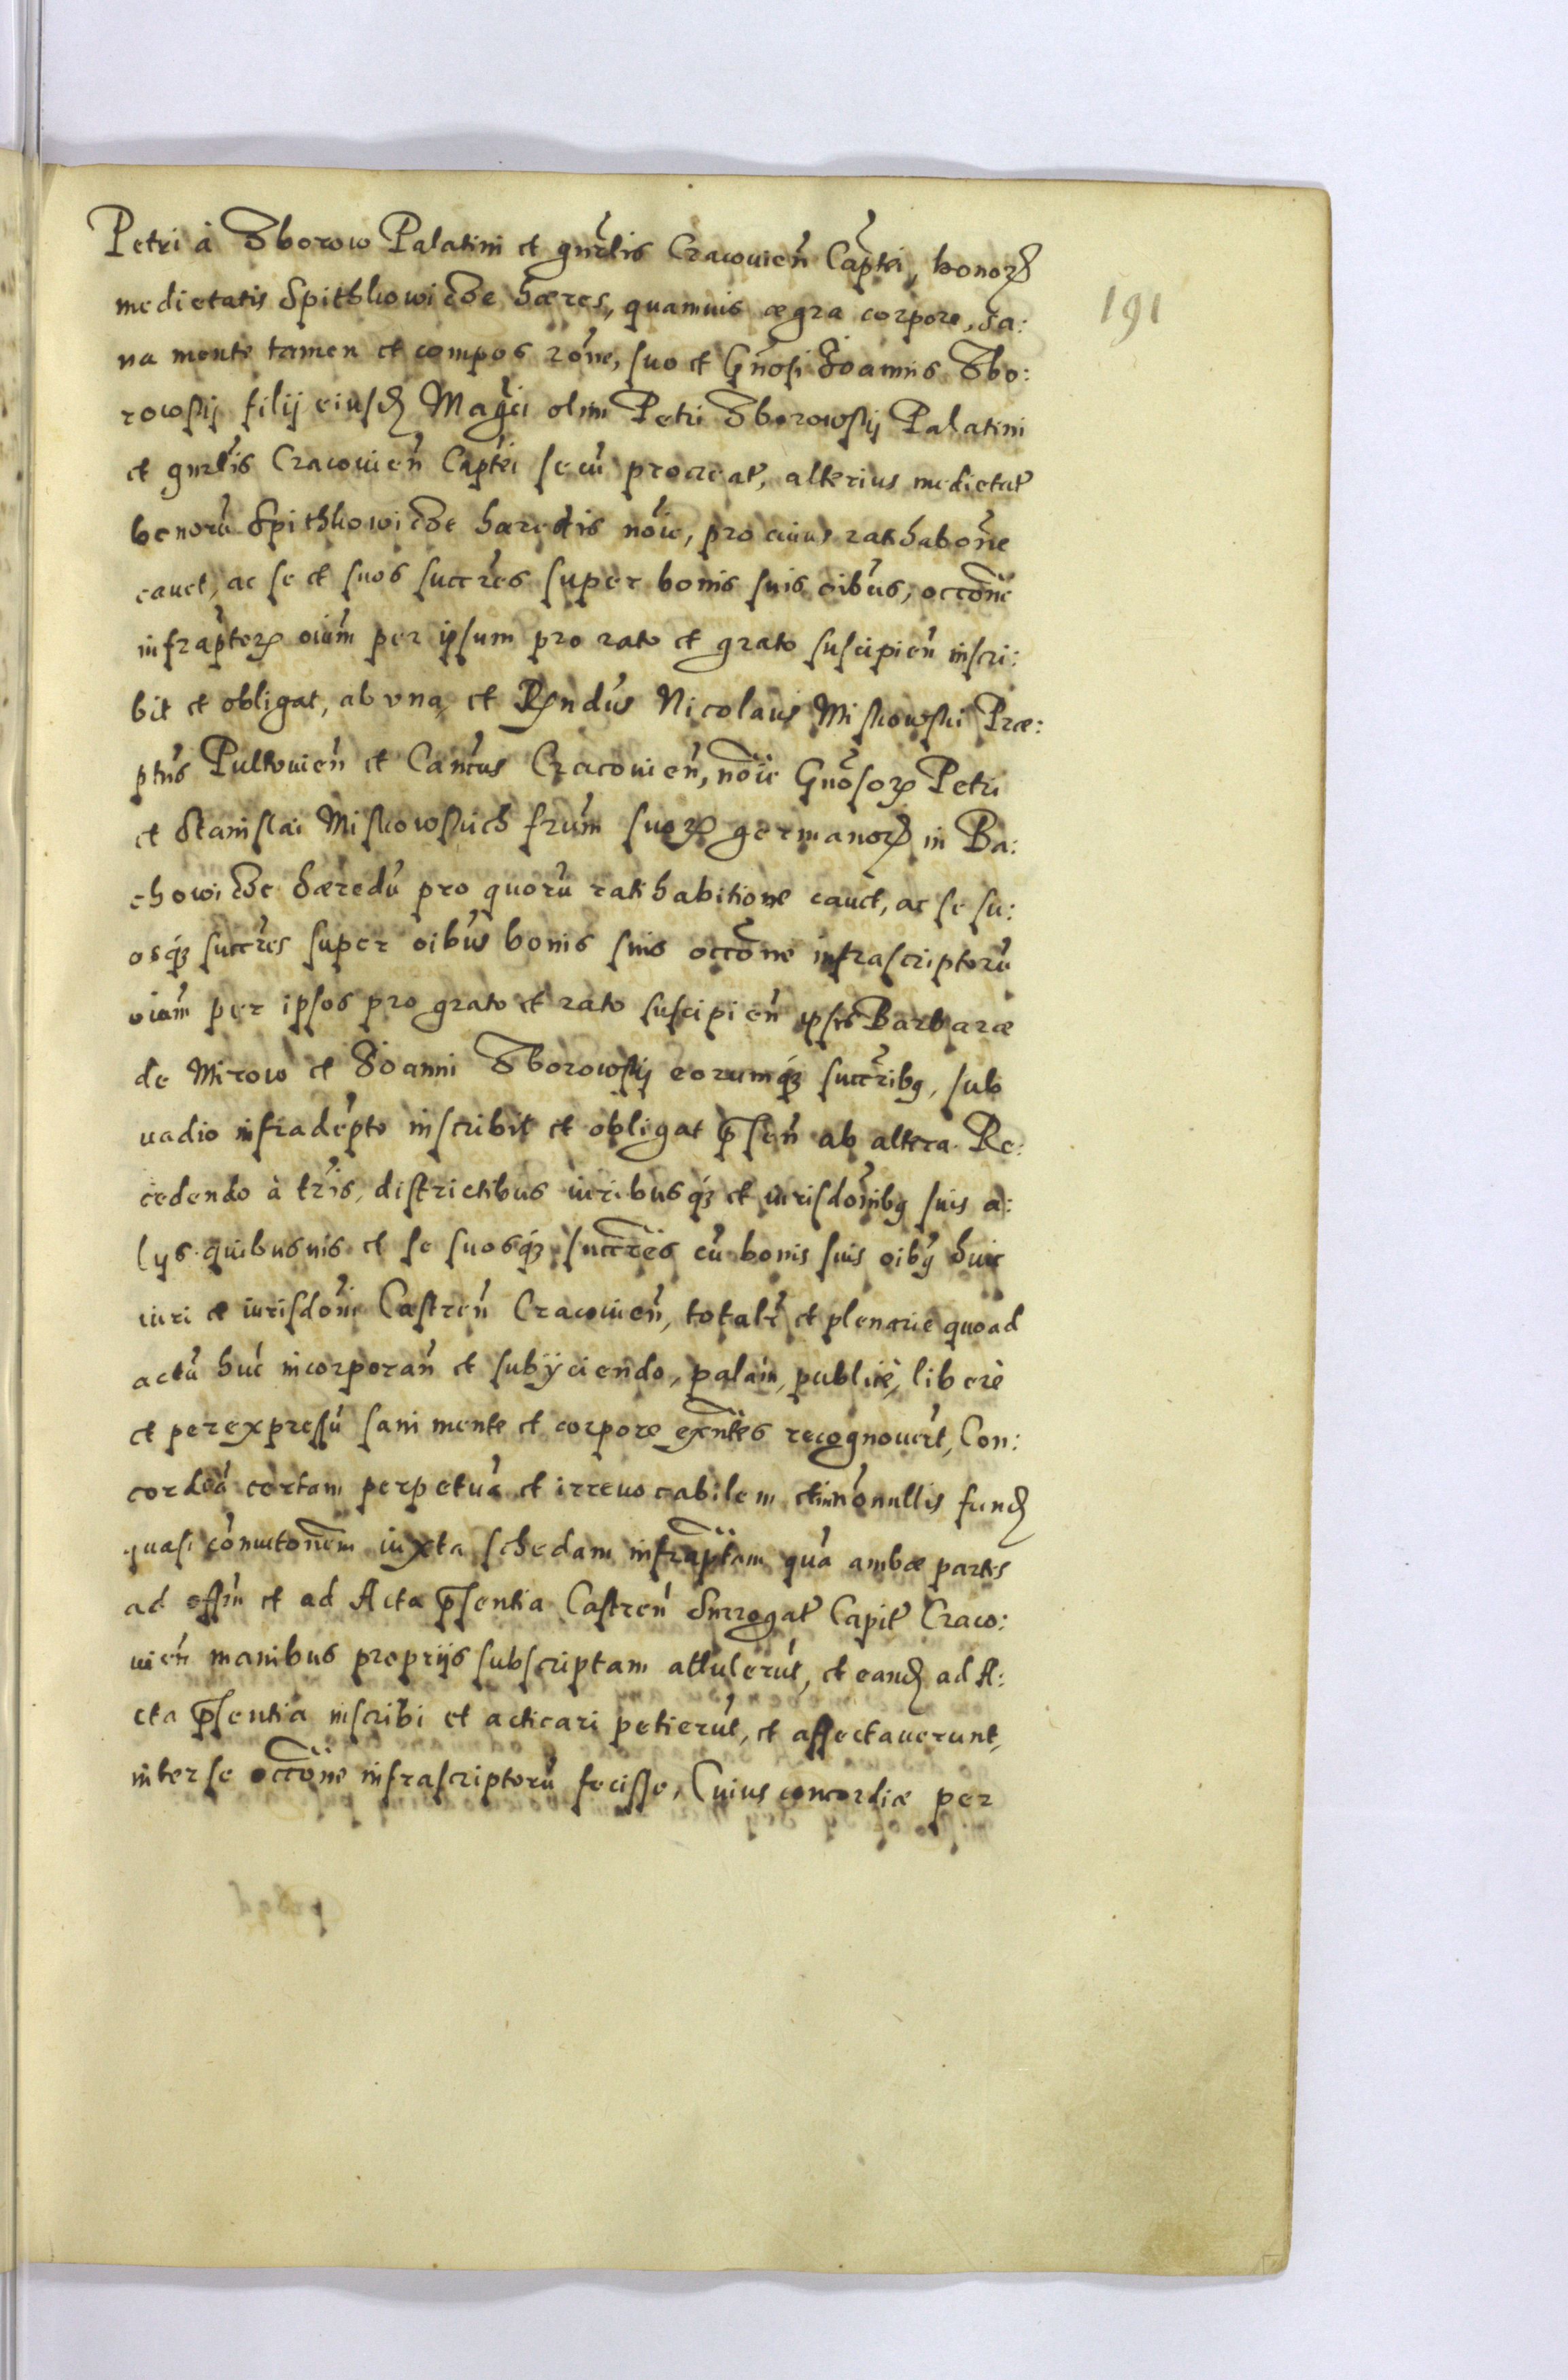 Petri à Zborow Palatini et gnrlis Cracouien̄ Captei, bonorꝝ
191
medietatis Spithkowicze hæres, quamuis ægra corpore, sa:
na mente tamen et compos rōne, suo et Gn̄osi Joannis Zbo:
rowskij filij eiusdꝫ Magci olim Petri Zborowskij Palatini
et gnrlis Cracouien̄ Captei secū procreat̄, alterius medietat̄
bonorū Spithkowicze hæredis nōie, pro cuius ratihabōne
cauet, ac se et suos succ̄res super bonis suis oībus, occ̄one
infrap̄torꝝ oium̄ per ipsum pro rato et grato suscipien̄ inscri:
bit et obligat, ab vna, et Rn̄dus Nicolaus Miskowski Præ:
pt̄us Pultouien̄ et Can̄cus Cracouien̄, nōie Gn̄osorꝝ Petri
et Stanislai Miskowskich frūm suorꝝ germanorꝝ in Ba:
chowicze hæredū pro quorū ratihabitione cauet, ac se su:
osqꝫ succ̄res super oībus bonis suis occ̄one infrascriptorū
oium̄ per ipsos pro grato et rato suscipien̄ ipsis Barbaræ
de Mirow et Joanni Zborowskij eorumqꝫ succ̄ribꝯ, sub
vadio infradep̄to inscribit et obligat p̄sen̄ ab altera. Re:
cedendo à tr̄is, districtibus iuribusqꝫ et iurisdōnibꝯ suis a:
lys quibusuis et se suosqꝫ succ̄res cū bonis suis oībꝯ huic
iuri et iurisdōni Castren̄ Cracouien̄, totalr̄ et plenarie quoad
actū huc̄ incorporan̄ et subijciendo, palam, publicè, liberè
et perexpressū sani mente et corpore exn̄tes recognouer̄t, Con:
cordiā certam perpetuā et irreuocabilem nonnullis fundꝫ
quasi cōmutōnem iuxta schedam infrap̄tam quā ambæ partes
ad offm̄ et ad Acta p̄sentia Castren̄ Surrogat̄ Capit̄ Craco:
uien̄ manibus proprijs subscriptam attulerūt, et eandꝫ ad A:
cta p̄sentia inscribi et acticari petierūt, et affectauerunt,
inter se occ̄one infrascriptorū fecisse, Cuius concordiæ per